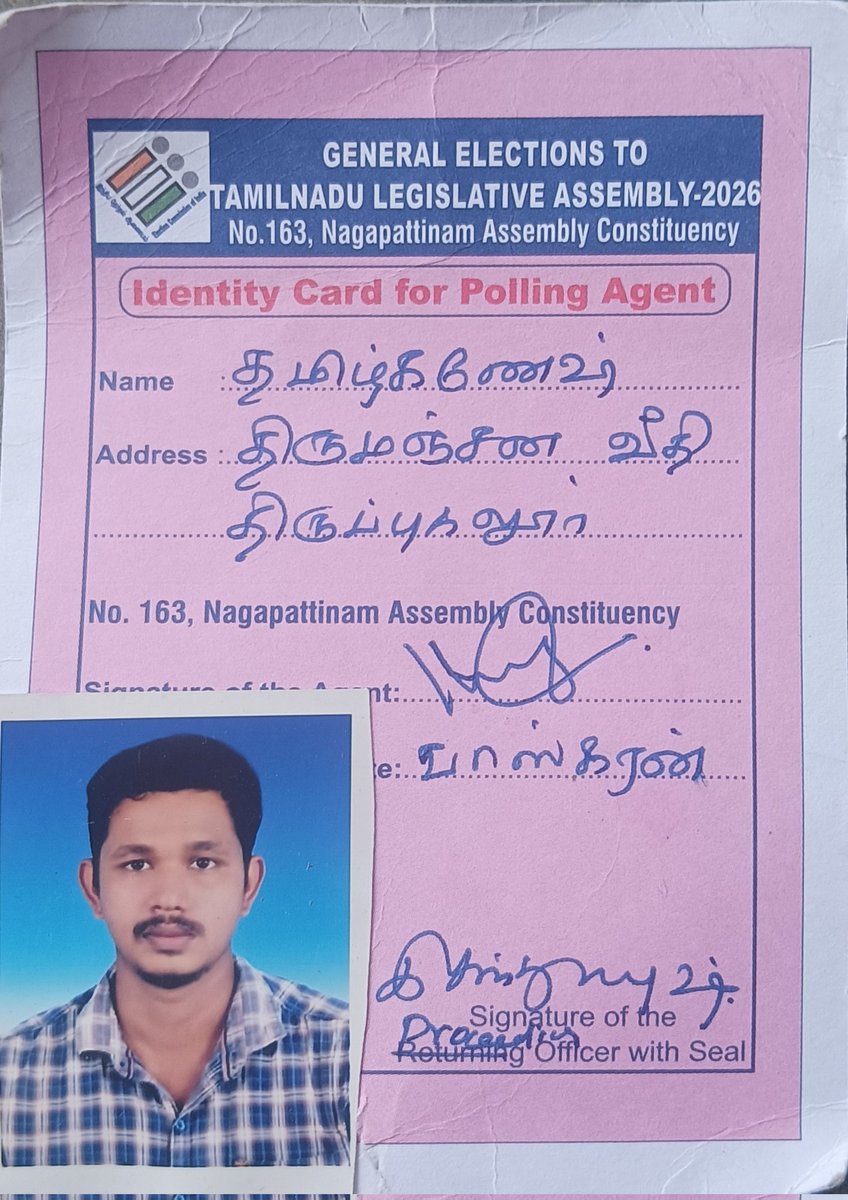 GENERAL ELECTIONS TO
TAMILNADU LEGISLATIVE ASSEMBLY-2026
No.163, Nagapattinam Assembly Constituency
Identity Card for Polling Agent
Name :
Address : திருமஞ்சன வீதி
திருப்புகலூர்
No. 163, Nagapattinam Assembly Constituency
Signature of the Agent:
பாஸ்கரன்
Signature of the
Returning Officer with Seal